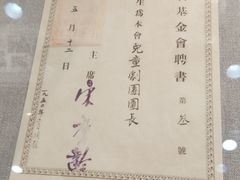 基金會聘書 第叁號
生為本會兒童劇團團長
主席
五月十二日
一九五